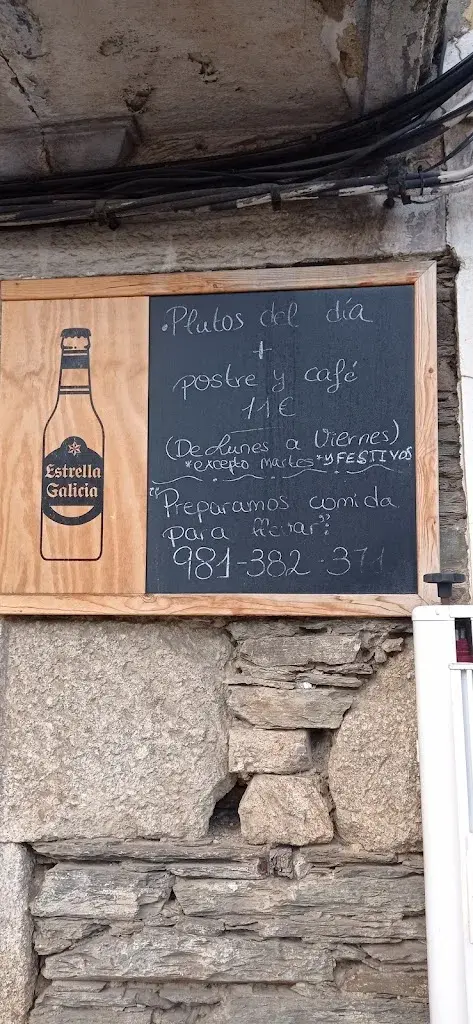 Estrella
Galicia
.Plutos del día
+
postre y café
11€
(De Lunes a Viernes)
*excepto martes* y FESTIVOS
"Preparamos comida
para llevar":
981-382-371